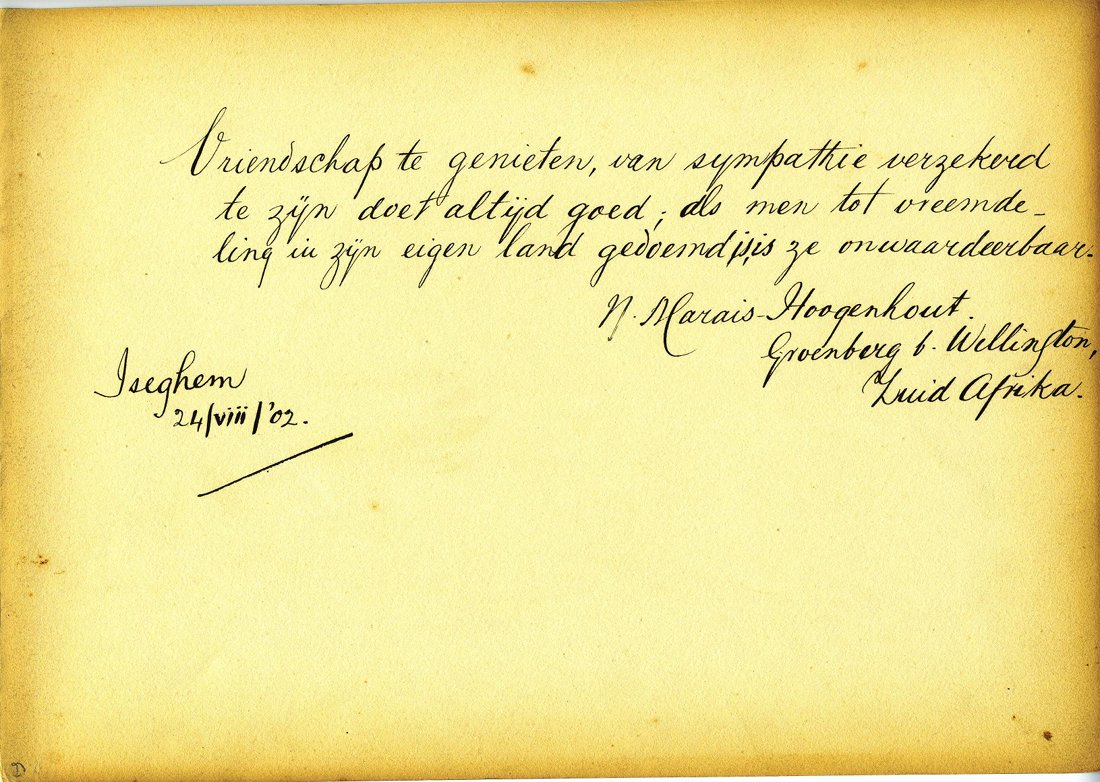 Vriendschap te genieten, van sympathie verzekerd
te zijn doet altijd goed; als men tot vreemde-
ling in zijn eigen land gedoemd is, is ze onwaardeerbaar.
N. Marais-Hoogenhout.
Groenberg b. Wellington,
Zuid Afrika.
Iseghem
24/viii/'02.